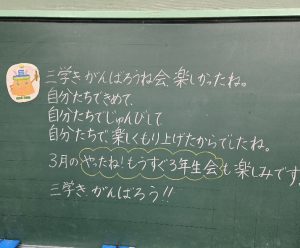 三学き がんばろうね会、楽しかったね。
自分たちできめて、
自分たちでじゅんびして
自分たちで、楽しくもり上げたからでしたね。
3月の やったね!もうすぐ3年生会 も楽しみです。
三学き、がんばろう!!